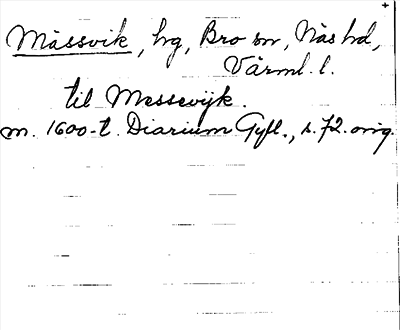 Mässvik, hg, Bro sn, Näs hd,
Värml. l.
til Messevijk.
m. 1600-t. Diarium Gyll., s. 72. orig.